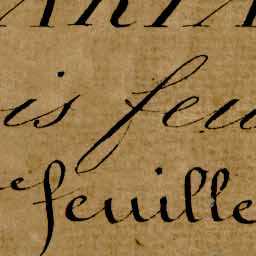 is feu
feuille